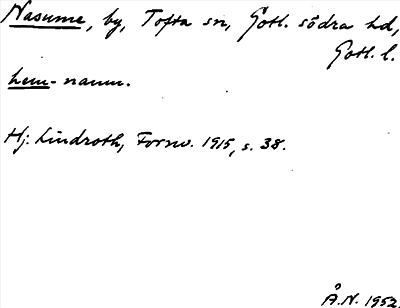 Nasume, by, Tofta sn, Gotl. södra hd,
Gotl. l.
hem-namn.
Hj. Lindroth, Fornv. 1915, s. 38.
Å.N. 1952.